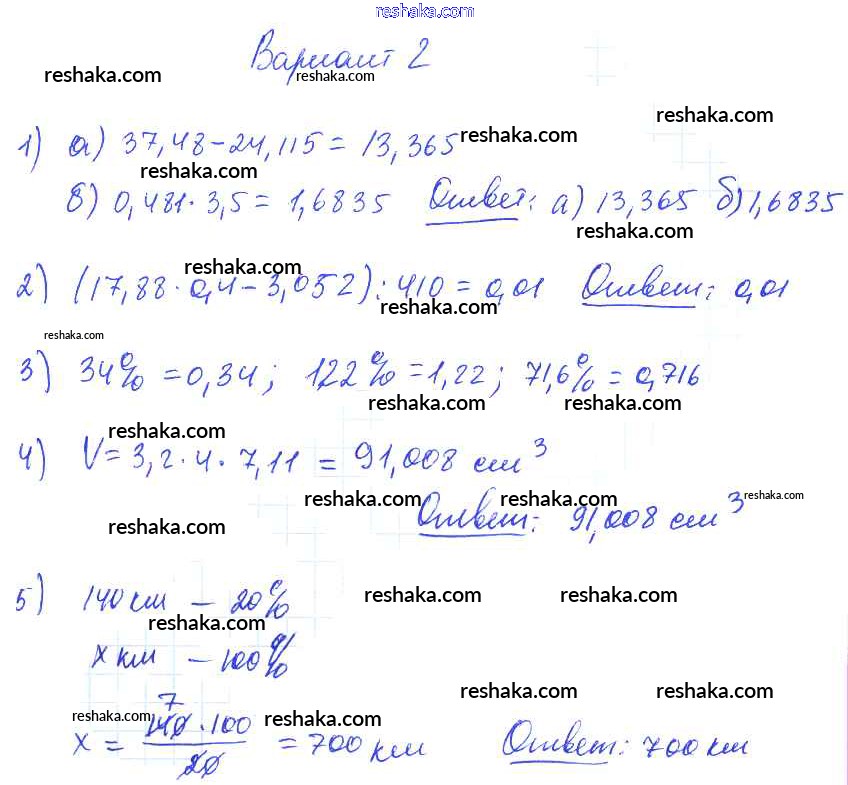 reshaka.com
Вариант 2
reshaka.com reshaka.com
reshaka.com
1) а) 37,48-24,115 = 13,365 reshaka.com
reshaka.com
б) 0,481·3,5 = 1,6835 Ответ: а) 13,365 б) 1,6835
reshaka.com
reshaka.com
2) (17,88·0,4-3,052):410 = 0,01 Ответ: 0,01
reshaka.com
reshaka.com
3) 34% = 0,34; 122% = 1,22; 71,6% = 0,716
reshaka.com reshaka.com
reshaka.com
4) V = 3,2·4·7,11 = 91,008 см³
reshaka.com reshaka.com reshaka.com
Ответ: 91,008 см³
reshaka.com
5) 140 км – 20% reshaka.com reshaka.com
reshaka.com
x км – 100%
reshaka.com reshaka.com
7
reshaka.com reshaka.com
x = 140·100 / 20 = 700 км Ответ: 700 км